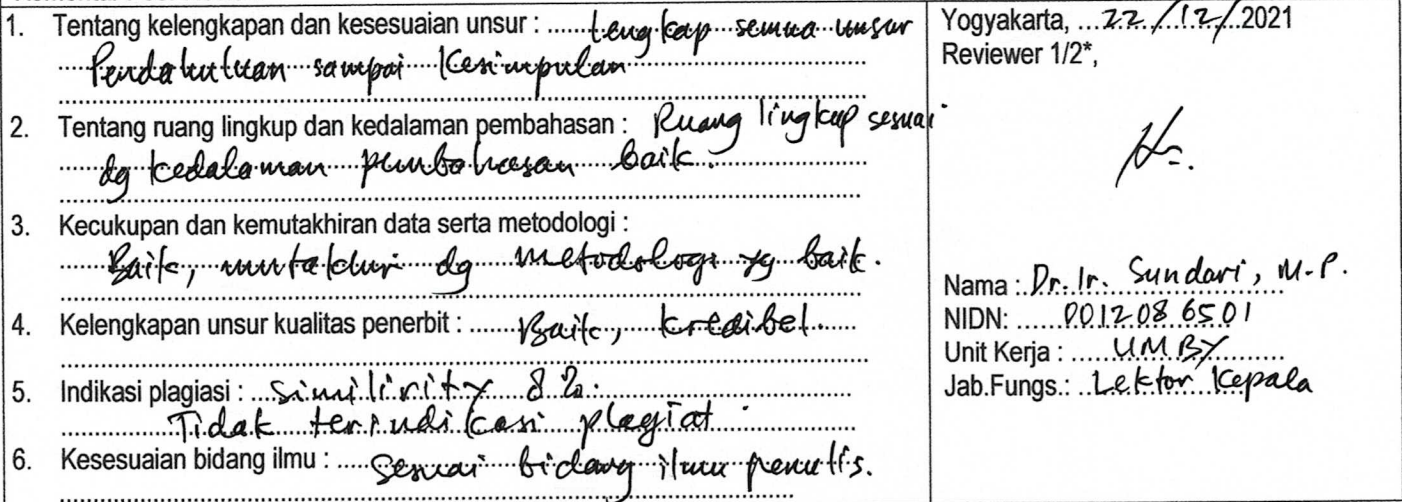 1. Tentang kelengkapan dan kesesuaian unsur : lengkap semua unsur
Pendahuluan sampai Kesimpulan
2. Tentang ruang lingkup dan kedalaman pembahasan : Ruang lingkup sesuai
dg kedalaman pembahasan baik.
3. Kecukupan dan kemutakhiran data serta metodologi :
Baik, mutakhir dg metodologi yg baik.
4. Kelengkapan unsur kualitas penerbit : Baik, kredibel.
5. Indikasi plagiasi : Similirity 8 %.
Tidak terindikasi plagiat.
6. Kesesuaian bidang ilmu : Sesuai bidang ilmu penulis.
Yogyakarta, 22/12/2021
Reviewer 1/2*,
Nama : Dr. Ir. Sundari, M.P.
NIDN: 0012086501
Unit Kerja : UMBY
Jab.Fungs.: Lektor Kepala